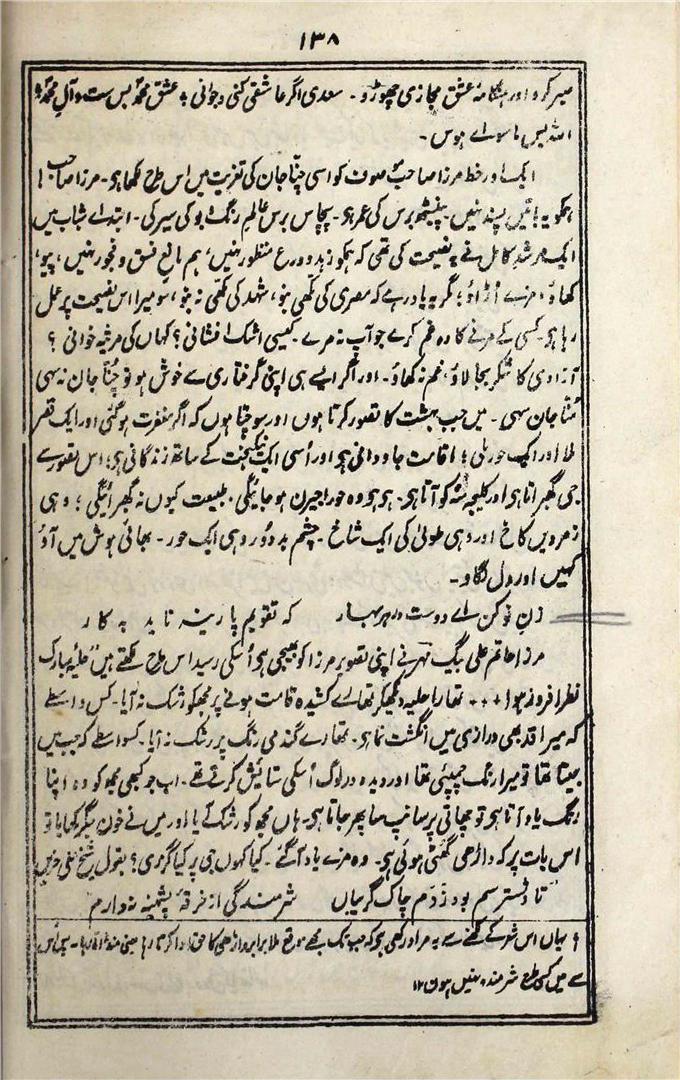 ۱۳۸
میر کرو اور ہنگامۂ عشق مجازی چھوڑو ۔ سعدی اگر عاشقی کنی و جوانی ؛ عشق محمدؐ بس ست و آلِ محمدؐ ؛
اللہ بس ما سواے ہوس ۔
ایک اور خط مرزا صاحب موصوف کو اسی چنّا جان کی تعزیت میں اس طرح لکھا ہی ۔ مرزا صاحب !
ہمکو یہ باتیں پسند نہیں ۔ پینسٹھ برس کی عمر ہو ۔ پچاس برس عالمِ رنگ و بو کی سیر کی ۔ ابتداے شباب میں
ایک مرشدِ کامل نے یہ نصیحت کی تھی کہ ہمکو زہد و ورع منظور نہیں، ہم مانعِ فسق و فجور نہیں، پیو،
کھاؤ، مزے اُڑاؤ ؛ مگر یہ یاد رہے کہ مصری کی مکھی بنو، شہد کی مکھی نہ بنو، سو میرا اس نصیحت پر عمل
رہا ہی ۔ کسی کے مرنے کا وہ غم کرے جو آپ نہ مرے ۔ کیسی اشک افشانی ؟ کہاں کی مرثیہ خوانی ؟
آزادی کا شکر بجا لاؤ، غم نہ کھاؤ ۔ اور اگر ایسے ہی اپنی گرفتاری سے خوش ہو تو چُنّا جان نہ سہی
مُنّا جان سہی ۔ میں جب بہشت کا تصور کرتا ہوں اور سوچتا ہوں کہ اگر مغفرت ہو گئی اور ایک قصر
ملا اور ایک حور ملی ؛ اقامت جاودانی ہی اور اُسی ایک نیکبخت کے ساتھ زندگانی ہی ؛ اس تصور سے
جی گھبراتا ہی اور کلیجہ منہ کو آتا ہی ۔ ہی ہی وہ حور اجیرن ہو جائیگی، طبیعت کیوں نہ گھبرائیگی ؛ وہی
زمردیں کاخ اور وہی طوبیٰ کی ایک شاخ ۔ چشم بد دُور وہی ایک حور ۔ بھائی ہوش میں آؤ
کہیں اور دل لگاؤ ۔
زنِ نو کن اے دوست در ہر بہار کہ تقویم پارینہ ناید بہ کار
مرزا حاتم علی بیگ مہر نے اپنی تصویر مرزا کو بھیجی ہی اُسکی رسید اس طرح لکھتے ہیں "حلیہ مبارک
نظر افروز ہوا ۰۰۰ تمھارا حلیہ دیکھکر تمھارے کشیدہ قامت ہونے پر مجھکو رشک نہ آیا ۔ کس واسطے
کہ میرا قد بھی درازی میں انگشت نما ہی ۔ تمھارے گندمی رنگ پر رشک نہ آیا ۔ کسواسطے کہ جب میں
جیتا تھا تو میرا رنگ چمپئی تھا اور دیدہ ور لوگ اُسکی ستایش کرتے تھے ۔ اب جو کبھی مجھ کو وہ اپنا
رنگ یاد آتا ہی تو چھاتی پر سانپ سا پھر جاتا ہی ۔ ہاں مجھ کو رشک آیا اور میں نے خونِ جگر کھایا تو
اس بات پر کہ داڑھی گھُٹی ہوئی ہی ۔ وہ مزے یاد آگئے ۔ کیا کہوں جی پر کیا گزری ؟ بقول شیخ علی حزیں
"تا دسترسم بود زَدَم چاک گریباں شرمندگی از خرقۂ پشمینہ ندارم"
؛ یہاں اس شعر کے لکھنے سے یہ مراد رکھی ہی کہ جب تک مجھے موقع ملا برابر داڑھی کا حق ادا کرتا رہا یعنی منڈواتا رہا ۔ پس اُس
سے میں کسی طرح شرمندہ نہیں ہوں ۱۲